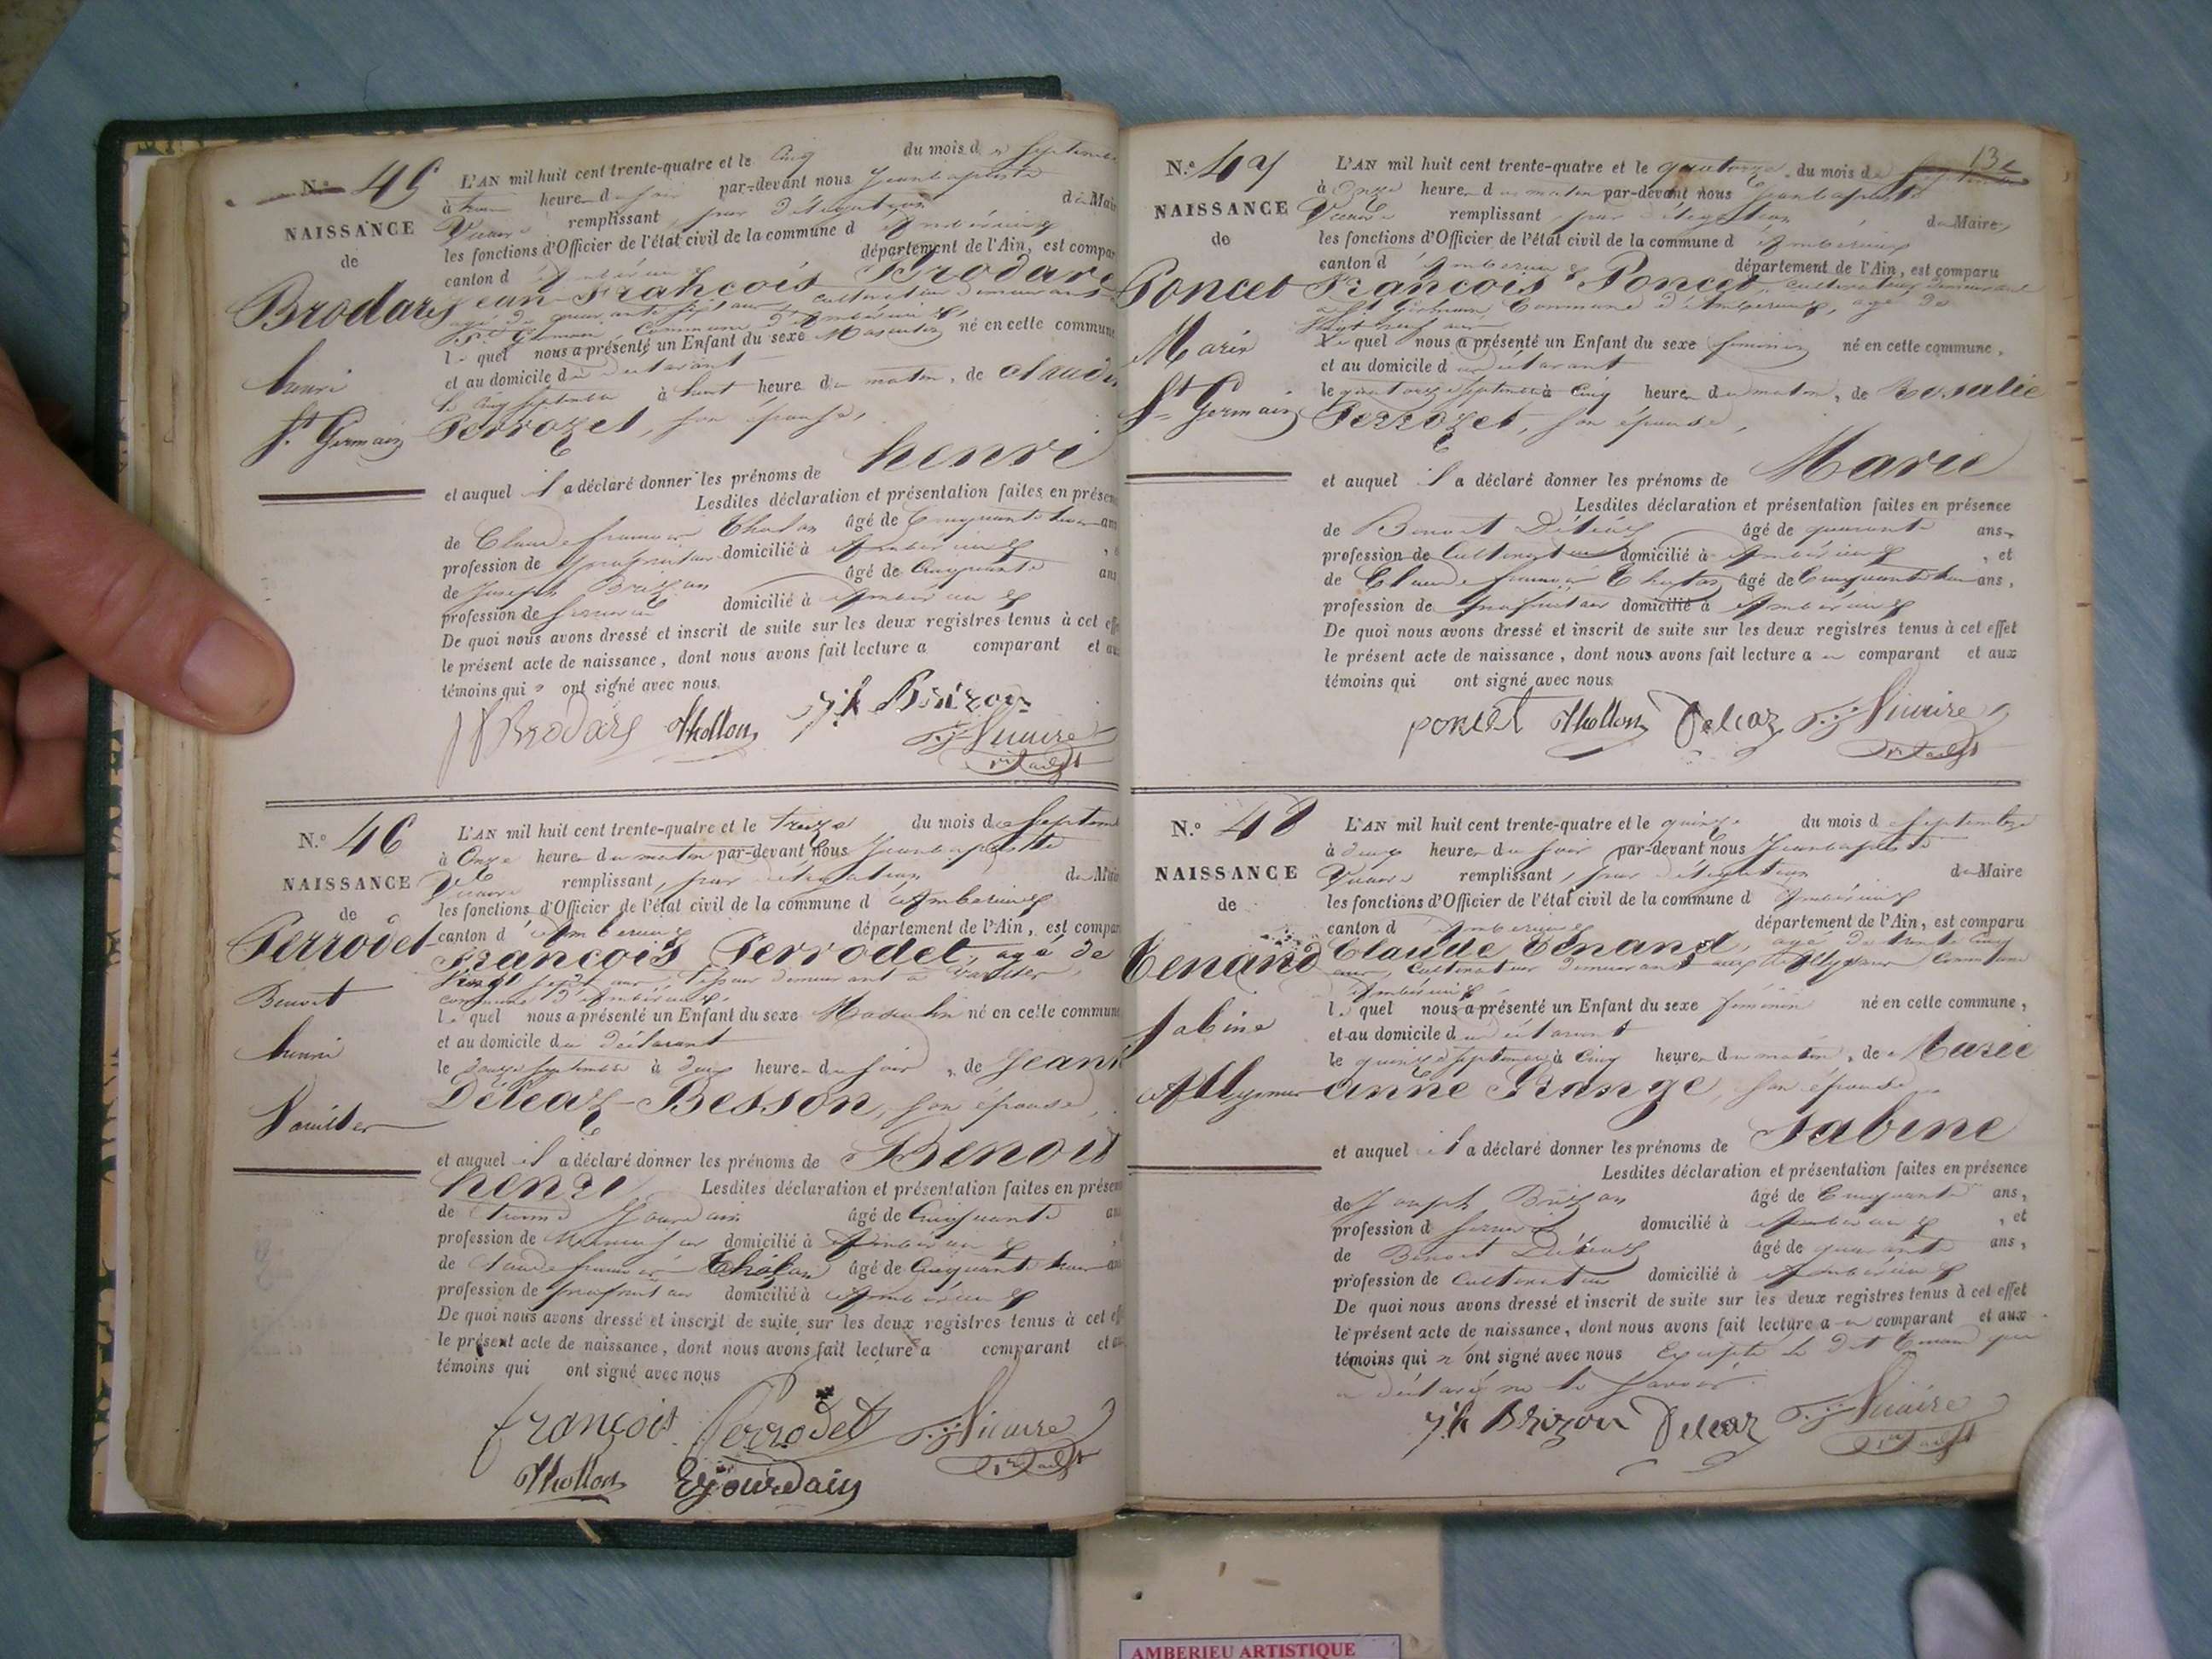 N.º 45
NAISSANCE
de
Brodard
henri
St Germain
L'AN mil huit cent trente-quatre et le Cinq du mois de Septembre
à heure du soir par-devant nous Jeanbaptiste
Vicaire remplissant par délégation du Maire
les fonctions d'Officier de l'état civil de la commune d'Ambérieux
canton d'Ambérieux département de l'Ain, est comparu
Jean François Brodard cultivateur demeurant
St Germain, Commune d'Ambérieux,
lequel nous a présenté un Enfant du sexe Masculin né en cette commune
et au domicile du déclarant
le Cinq septembre à huit heure du matin, de Claudine
Perrozet, son épouse,
et auquel il a déclaré donner les prénoms de henri
Lesdites déclaration et présentation faites en présence
de Claude françois Tholon âgé de Cinquante ans
profession de propriétaire domicilié à Ambérieux, et
de Joseph Brizon âgé de Cinquante ans
profession de domicilié à Ambérieux
De quoi nous avons dressé et inscrit de suite sur les deux registres tenus à cet effet
le présent acte de naissance, dont nous avons fait lecture a comparant et aux
témoins qui ont signé avec nous.
Brodard Thollon Jh Brizon
Vicaire
N.º 46
NAISSANCE
de
Perrodet
Benoit
henri
Vareilles
L'AN mil huit cent trente-quatre et le treize du mois de Septembre
à Onze heure du matin par-devant nous Jeanbaptiste
Vicaire remplissant, par délégation du Maire
les fonctions d'Officier de l'état civil de la commune d'Ambérieux
canton d'Ambérieux département de l'Ain, est comparu
François Perrodet, agé de
Vingt sept ans, demeurant à Vareilles,
commune d'Ambérieux,
lequel nous a présenté un Enfant du sexe Masculin né en cette commune
et au domicile du déclarant
le douze septembre à deux heure du soir, de Jeanne
Déléaz-Besson, son épouse,
et auquel il a déclaré donner les prénoms de Benoit
henri Lesdites déclaration et présentation faites en présence
de Jourdain âgé de Cinquante ans
profession de domicilié à Ambérieux
de Claude françois Tholon âgé de Cinquante ans
profession de propriétaire domicilié à Ambérieux
De quoi nous avons dressé et inscrit de suite sur les deux registres tenus à cet effet
le présent acte de naissance, dont nous avons fait lecture a comparant et aux
témoins qui ont signé avec nous
françois Perrodet Vicaire
Thollon Jourdain
13
N.º 47
NAISSANCE
de
Poncet
Marie
St Germain
L'AN mil huit cent trente-quatre et le quatorze du mois de septembre
à Onze heure du matin par-devant nous Jeanbaptiste
Vicaire remplissant, par délégation du Maire
les fonctions d'Officier de l'état civil de la commune d'Ambérieux
canton d'Ambérieux département de l'Ain, est comparu
François Poncet, cultivateur demeurant
à St Germain, Commune d'Ambérieux, agé de
Vingt neuf ans
Lequel nous a présenté un Enfant du sexe féminin né en cette commune,
et au domicile du déclarant
le quatorze septembre à Cinq heure du matin, de Rosalie
Perrozet, son épouse,
et auquel il a déclaré donner les prénoms de Marie
Lesdites déclaration et présentation faites en présence
de Benoit Déléaz âgé de quarante ans,
profession de Cultivateur domicilié à Ambérieux, et
de Claude françois Tholon âgé de Cinquante ans,
profession de propriétaire domicilié à Ambérieux
De quoi nous avons dressé et inscrit de suite sur les deux registres tenus à cet effet
le présent acte de naissance, dont nous avons fait lecture au comparant et aux
témoins qui ont signé avec nous.
poncet Thollon Deleaz Vicaire
N.º 48
NAISSANCE
de
Tenand
Sabine
Allymes
L'AN mil huit cent trente-quatre et le quinze du mois de Septembre
à deux heure du soir par-devant nous Jeanbaptiste
Vicaire remplissant, par délégation du Maire
les fonctions d'Officier de l'état civil de la commune d'Ambérieux
canton d'Ambérieux département de l'Ain, est comparu
Claude Tenand, agé de trente Cinq
ans, Cultivateur demeurant aux Allymes Commune
d'Ambérieux
lequel nous a présenté un Enfant du sexe féminin né en cette commune,
et au domicile du déclarant
le quinze septembre à Cinq heure du matin, de Marie
anne Grange, son épouse
et auquel il a déclaré donner les prénoms de Sabine
Lesdites déclaration et présentation faites en présence
de Joseph Brizon âgé de Cinquante ans,
profession d domicilié à Ambérieux, et
de Benoit Déléaz âgé de quarante ans,
profession de Cultivateur domicilié à Ambérieux
De quoi nous avons dressé et inscrit de suite sur les deux registres tenus à cet effet
le présent acte de naissance, dont nous avons fait lecture au comparant et aux
témoins qui ont signé avec nous Excepté le dit Tenand qui
a déclaré ne le savoir.
Jh Brizon Deleaz Vicaire
AMBERIEU ARTISTIQUE